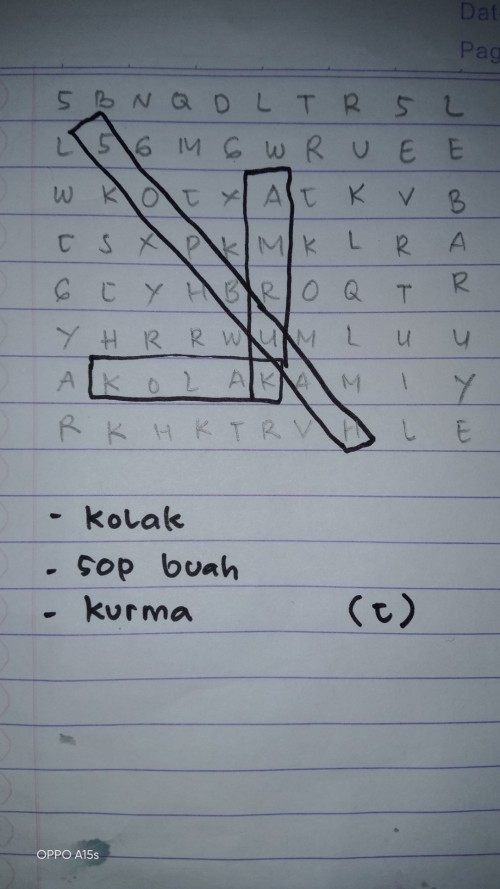 Dat
Pag
S B N Q D L T R S L
L S G M G W R U E E
W K O I X A I K V B
I S X P K M K L R A
G I Y H B R O Q T R
Y H R R W U M L U U
A K O L A K A M I Y
R K H K T R V H L E
- Kolak
- Sop buah
- Kurma (I)
OPPO A15s